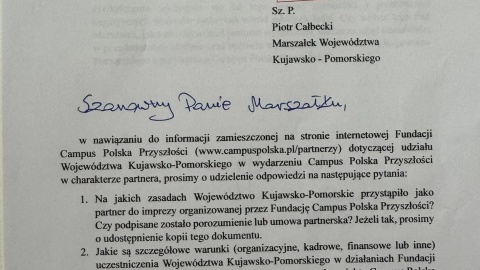 Sz. P.
Piotr Całbecki
Marszałek Województwa
Kujawsko - Pomorskiego
Szanowny Panie Marszałku,
w nawiązaniu do informacji zamieszczonej na stronie internetowej Fundacji
Campus Polska Przyszłości (www.campuspolska.pl/partnerzy) dotyczącej udziału
Województwa Kujawsko-Pomorskiego w wydarzeniu Campus Polska Przyszłości
w charakterze partnera, prosimy o udzielenie odpowiedzi na następujące pytania:
1. Na jakich zasadach Województwo Kujawsko-Pomorskie przystąpiło jako
partner do imprezy organizowanej przez Fundację Campus Polska Przyszłości?
Czy podpisane zostało porozumienie lub umowa partnerska? Jeżeli tak, prosimy
o udostępnienie kopii tego dokumentu.
2. Jakie są szczegółowe warunki (organizacyjne, kadrowe, finansowe lub inne)
uczestniczenia Województwa Kujawsko-Pomorskiego w działaniach Fundacji